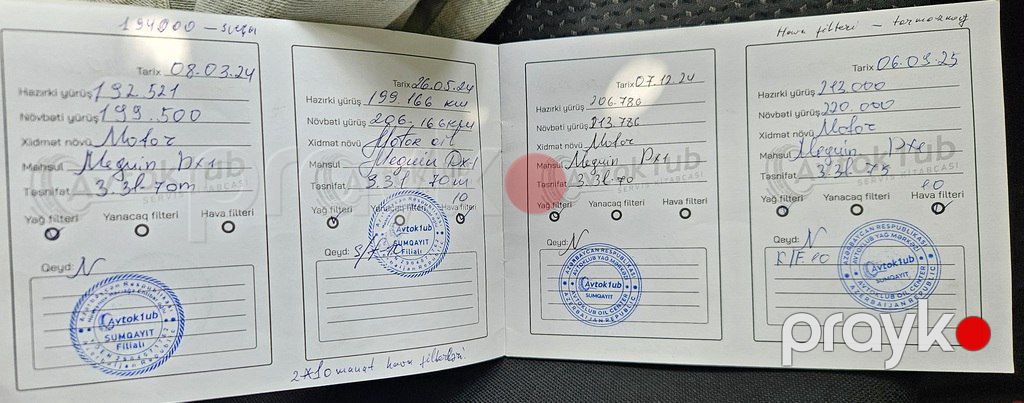 194000 –
Tarix 08.03.24
Hazırki yürüş 192.521
Növbəti yürüş 199.500
Xidmət növü Motor
Məhsul Meguin Dx1
Təsnifat 3.3l-70m
Yağ filteri Yanacaq filteri Hava filteri
Qeyd: N
Avtok1ub
SUMQAYIT
Filialı
Tarix 26.05.24
Hazırki yürüş 199.166 км
Növbəti yürüş 206-166км
Xidmət növü Motor oil
Məhsul Meguin Dx-1
Təsnifat 3.3l 70m
10
Yağ filteri Yanacaq filteri Hava filteri
Qeyd:
Avtok1ub
SUMQAYIT
Filialı
manat hava filteri
Tarix 07.12.24
Hazırki yürüş 206.786
Növbəti yürüş 213.786
Xidmət növü Motor
Məhsul Meguin Dx1
Təsnifat 3.3l-70
Yağ filteri Yanacaq filteri Hava filteri
Qeyd: N
AZƏRBAYCAN RESPUBLİKASI
AVTOKLUB YAĞ MƏRKƏZİ
Avtok1ub
SUMQAYIT
AVTOKLUB OIL CENTER
AZERBAIJAN REPUBLIC
Hava filteri –
Tarix 06.09.25
Hazırki yürüş 213.000
Növbəti yürüş 220.000
Xidmət növü Motor
Məhsul Meguin Dx1
Təsnifat 3.3l 75
10
Yağ filteri Yanacaq filteri Hava filteri
Qeyd: N
AZƏRBAYCAN RESPUBLİKASI
AVTOKLUB YAĞ MƏRKƏZİ
Avtok1ub
SUMQAYIT
AVTOKLUB OIL CENTER
AZERBAIJAN REPUBLIC
Avtok1ub
SERVİS KİTABÇASI
prayk